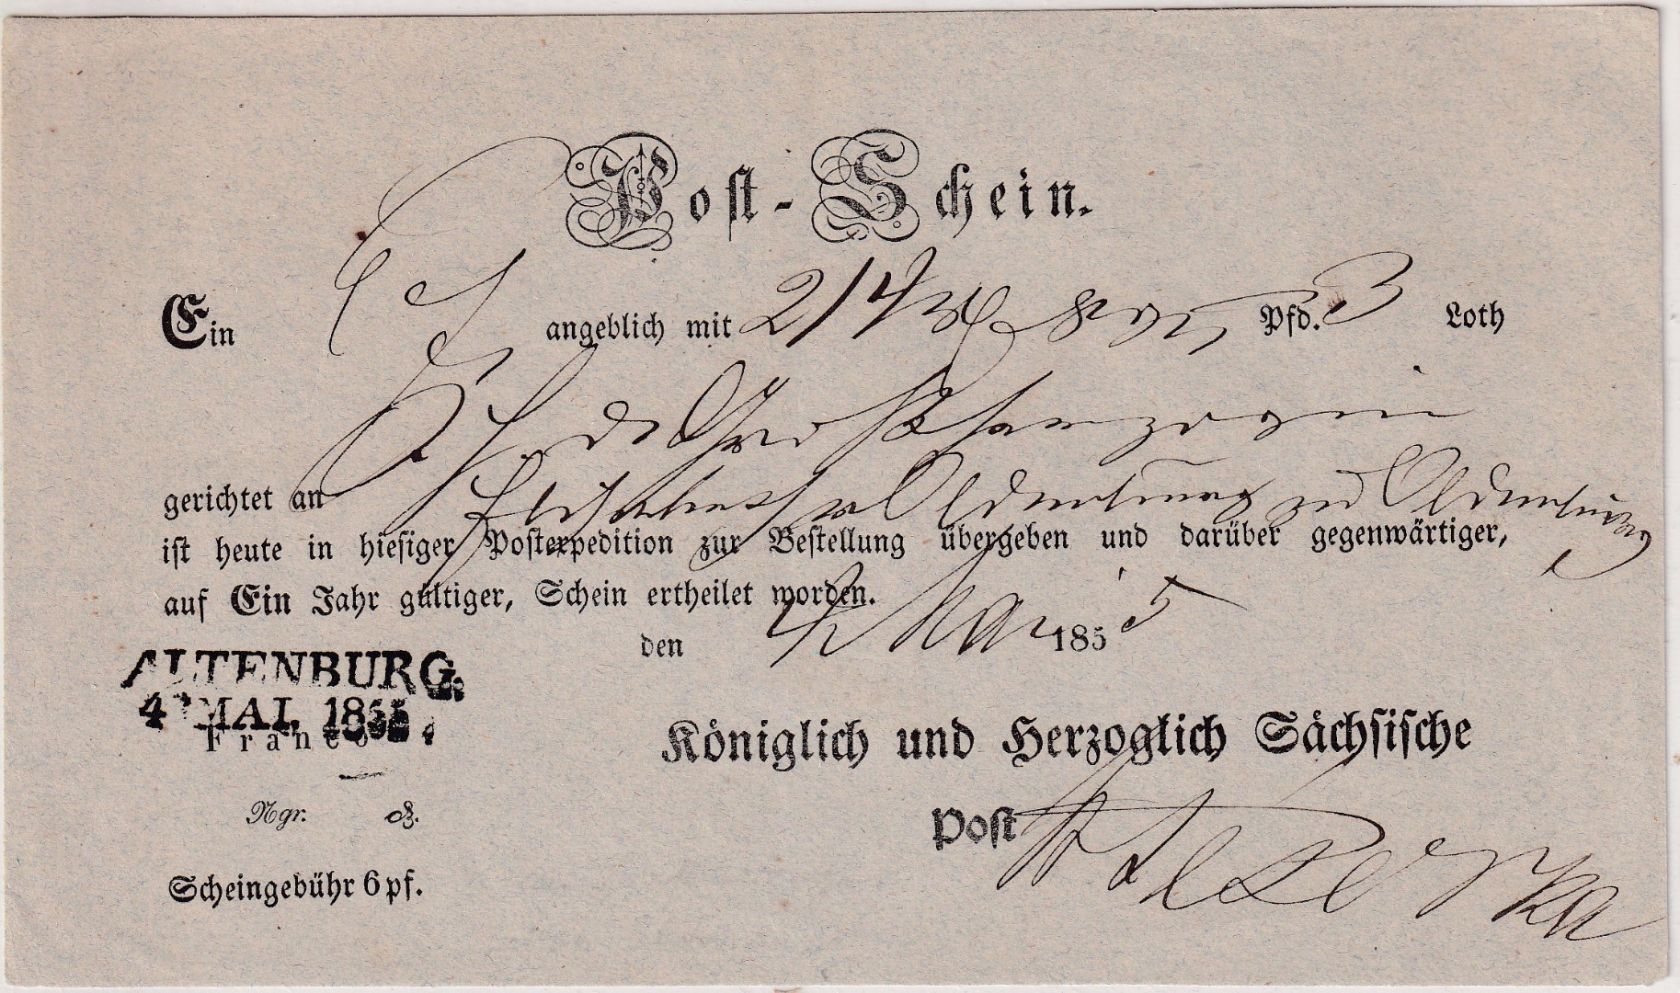 Post-Schein.
Ein angeblich mit Pfd. 3 Loth
Großherzogin
gerichtet an Elisabeth v Oldenburg zu Oldenburg
ist heute in hiesiger Postexpedition zur Bestellung übergeben und darüber gegenwärtiger,
auf Ein Jahr gültiger, Schein ertheilet worden.
den 4 Mai 1855
ALTENBURG
4 MAI. 1855
Franco
Königlich und Herzoglich Sächsische
Ngr. ₰.
Post
Scheingebühr 6 pf.